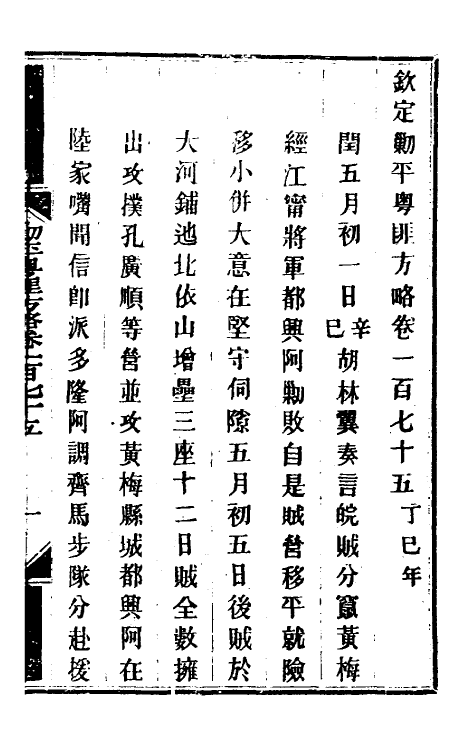 欽定勦平粵匪方略卷一百七十五丁巳年
閏五月初一日辛巳胡林翼奏言皖賊分竄黃梅
經江甯將軍都興阿勦敗自是賊營移平就險
移小併大意在堅守伺隙五月初五日後賊於
大河鋪迤北依山增壘三座十二日賊全數擁
出攻撲孔廣順等營並攻黃梅縣城都興阿在
陸家嘴聞信卽派多隆阿調齊馬步隊分赴援
卷一百七十五
一